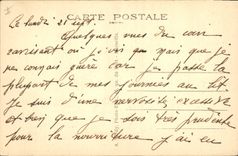 CARTE POSTALE
Le lundi 21 sept.
Quelques vues du coin
ravissant où j'vis qui mais que je
ne connais guère car je passe la
plupart de mes journées au lit
Je suis d'une nervosité excessive
et bien que je sois très prudente
pour la nourriture j'ai eu